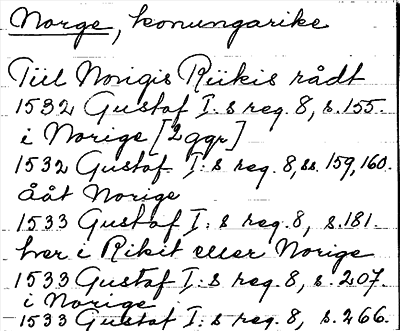 Norge, konungarike
Tiil Norigis Riikis rådt
1532 Gustaf I:s reg. 8, s. 155.
i Norige [2 ggr]
1532 Gustaf I:s reg. 8, ss. 159, 160.
Ååt Norige
1533 Gustaf I:s reg. 8, s. 181.
hver i Rikit eller Norige
1533 Gustaf I:s reg. 8, s. 207.
i Norige
1533 Gustaf I:s reg. 8, s. 266.